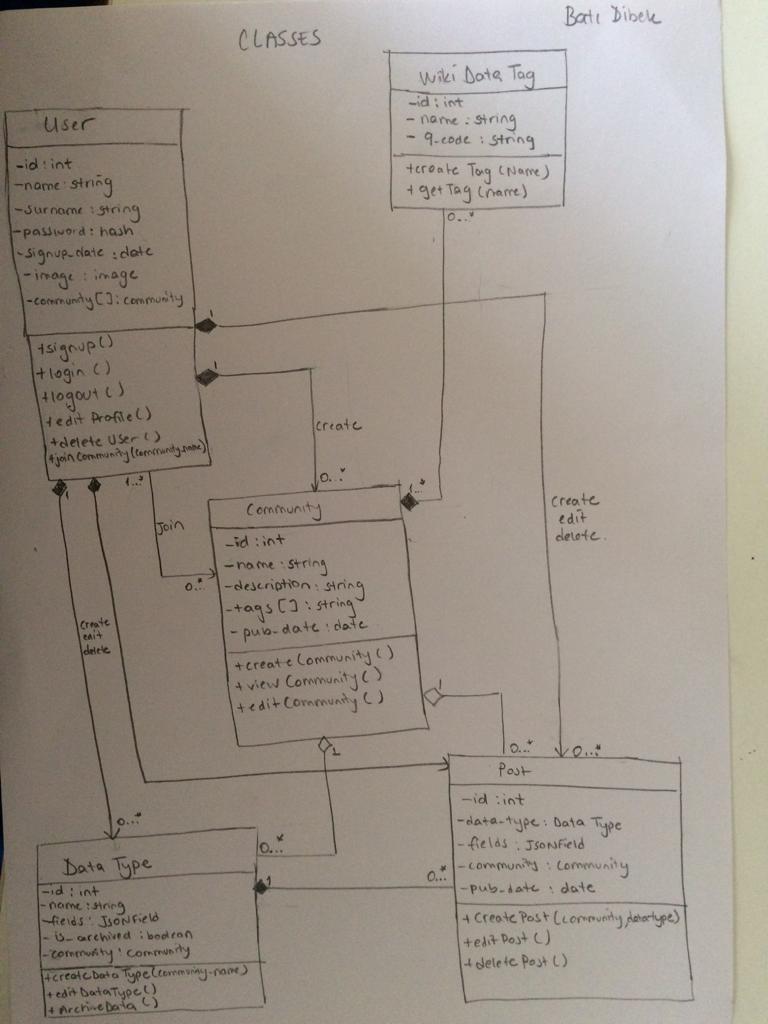 Batı Dibek
CLASSES
Wiki Data Tag
-id : int
- name : string
- q-code : string
+create Tag (Name)
+ getTag (name)
0...*
User
-id : int
-name : string
-surname : string
-password : hash
-signup_date : date
-image : image
-community[] : community
+signup()
+login ()
+logout ()
+edit Profile()
+delete User ()
+join Community (community_name)
1
1
create
0...*
1
1...*
1...*
Join
0...*
create
edit
delete
create
edit
delete.
Community
-id : int
-name : string
-description : string
-tags [] : string
- pub-date : date
+createCommunity ()
+view Community ()
+ edit Community ()
1
1
0...*
0...*
0...*
0...*
0...*
1
Post
-id : int
-data-type : Data Type
-fields : JsonField
-community : Community
-pub_date : date
+ createPost (community, datatype)
+editPost ()
+deletePost ()
Data Type
-id : int
-name : string
-fields : JsonField
- is_archived : boolean
-community : community
+createData Type (community-name)
+ editDataType()
+ ArchiveData ()